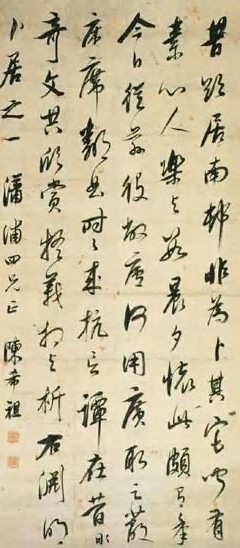 昔欲居南邨非為卜其宅聞有
素心人樂與數晨夕懷此頗有年
今日從茲役敝廬何用廣取足蔽
床席鄰曲時時來抗言譚在昔
奇文共欣賞疑義相與析 右淵明
卜居之一 浦四兄正 陳希祖